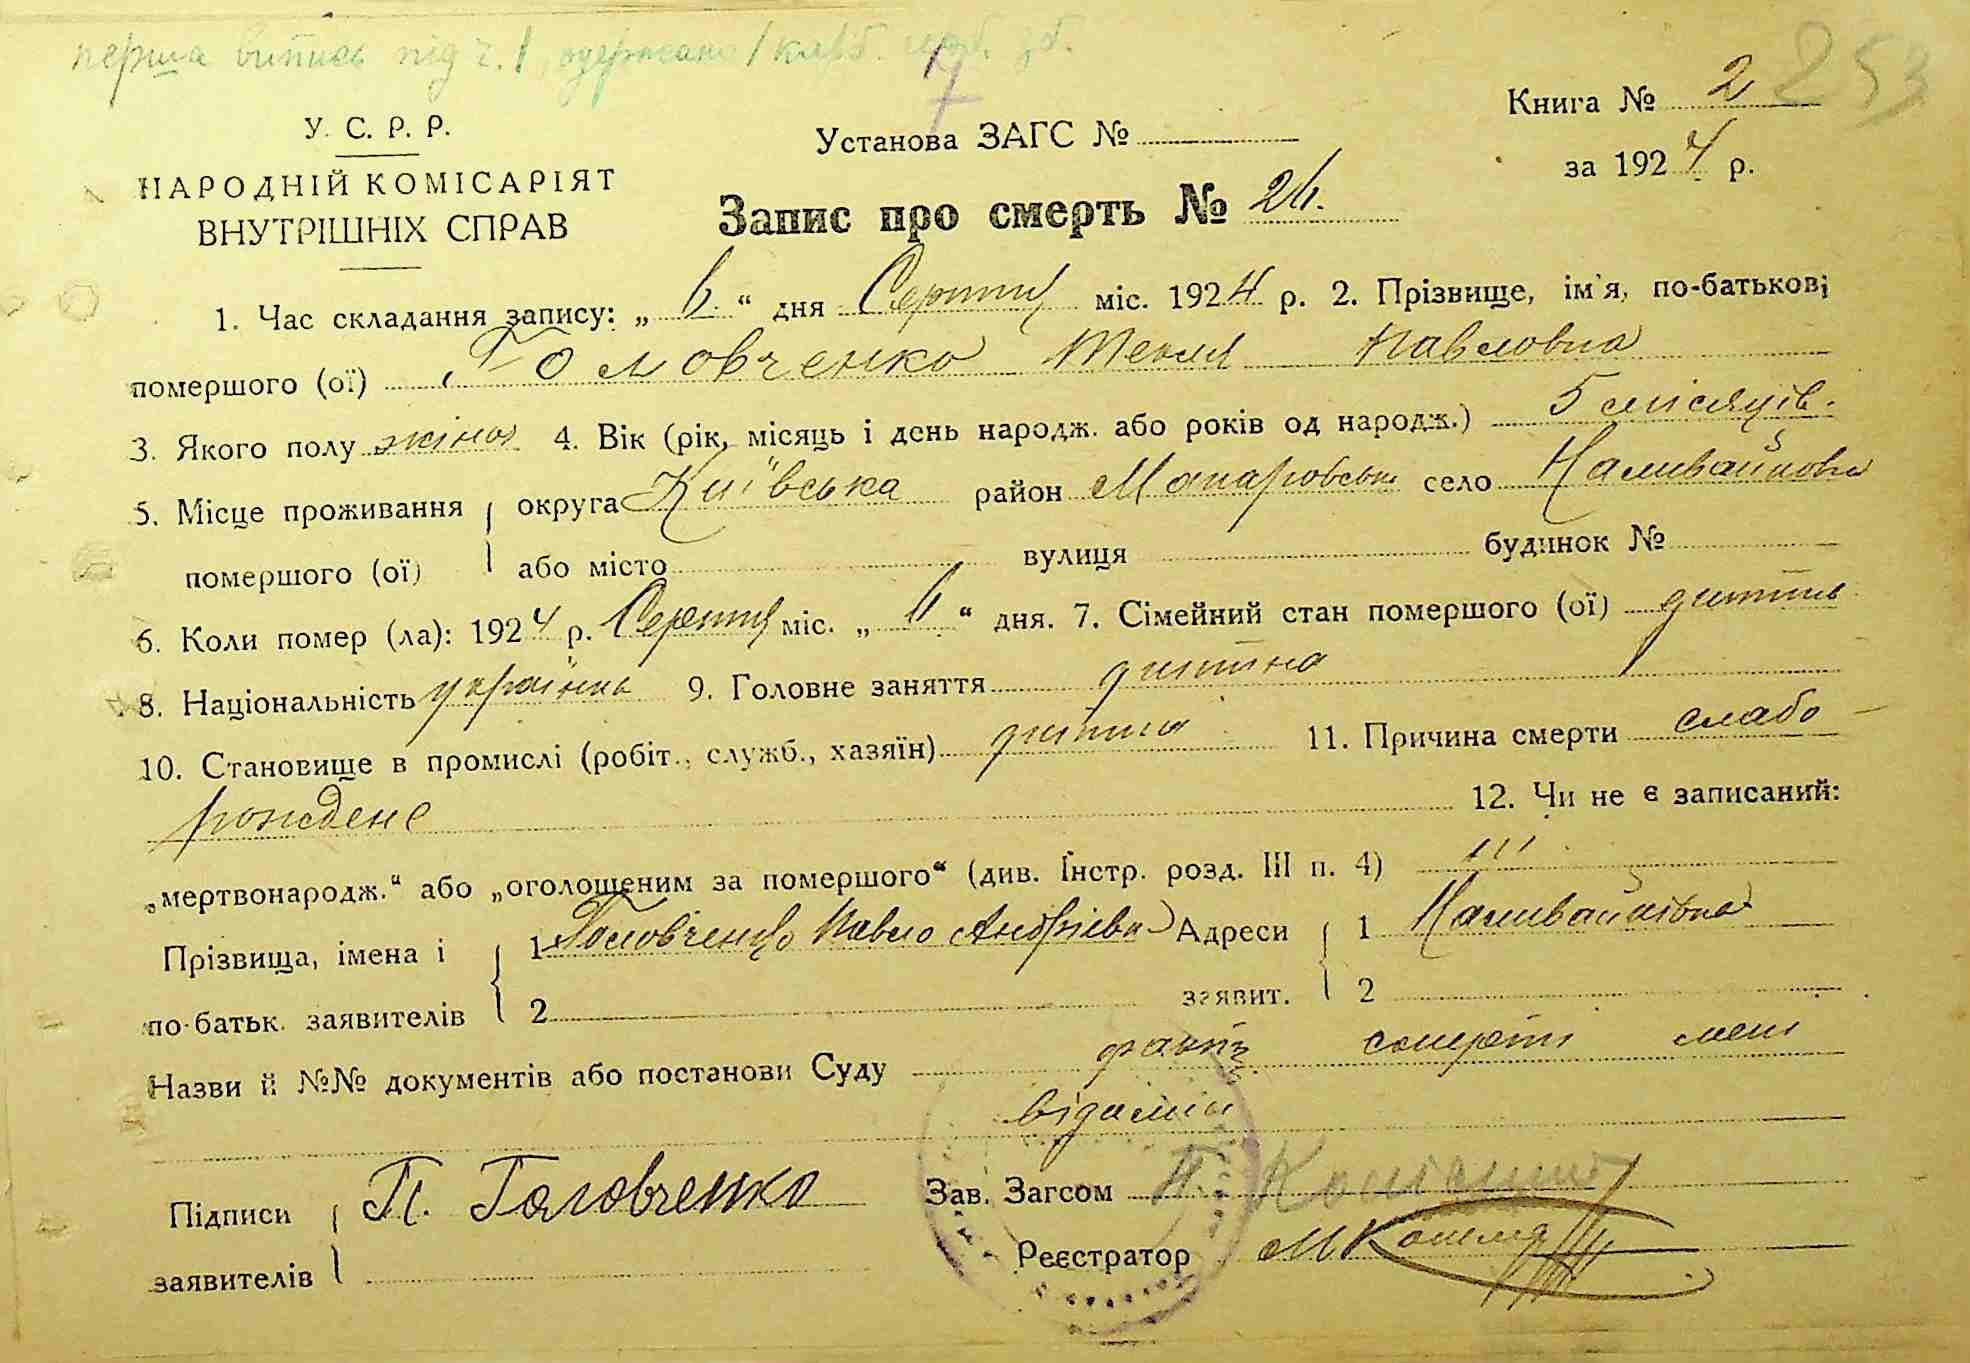 перша випись під ч. 1 одержано 1 карб.
253
У. С. Р. Р.
НАРОДНІЙ КОМІСАРІЯТ
ВНУТРІШНІХ СПРАВ
Установа ЗАГС №
Книга № 2
за 1924 р.
Запис про смерть № 26.
1. Час складання запису: „ 6. “ дня Серпня міс. 1924 р. 2. Прізвище, ім'я, по-батькові
помершого (ої) Головченко Текля Павловна
3. Якого полу жіноч 4. Вік (рік, місяць і день народж. або років од народж.) 5 місяців.
5. Місце проживання округа Київська район Макаровськ село Наливайковка
помершого (ої) або місто вулиця будинок №
6. Коли помер (ла): 1924 р. Серпня міс. „ 6 “ дня. 7. Сімейний стан помершого (ої) дитина
8. Національність українка 9. Головне заняття дитина
10. Становище в промислі (робіт., служб., хазяїн) дитина 11. Причина смерти слабо-
рождене 12. Чи не є записаний:
„мертвонародж.“ або „оголошеним за помершого“ (див. Інстр. розд. III п. 4)
Прізвища, імена і 1 Головченко Павло Андріїв Адреси 1 Наливайківка
по-батьк. заявителів 2 заявит. 2
Назви й №№ документів або постанови Суду фактъ смерти мені
відомий
Підписи П. Головченко Зав. Загсом
заявителів Реєстратор